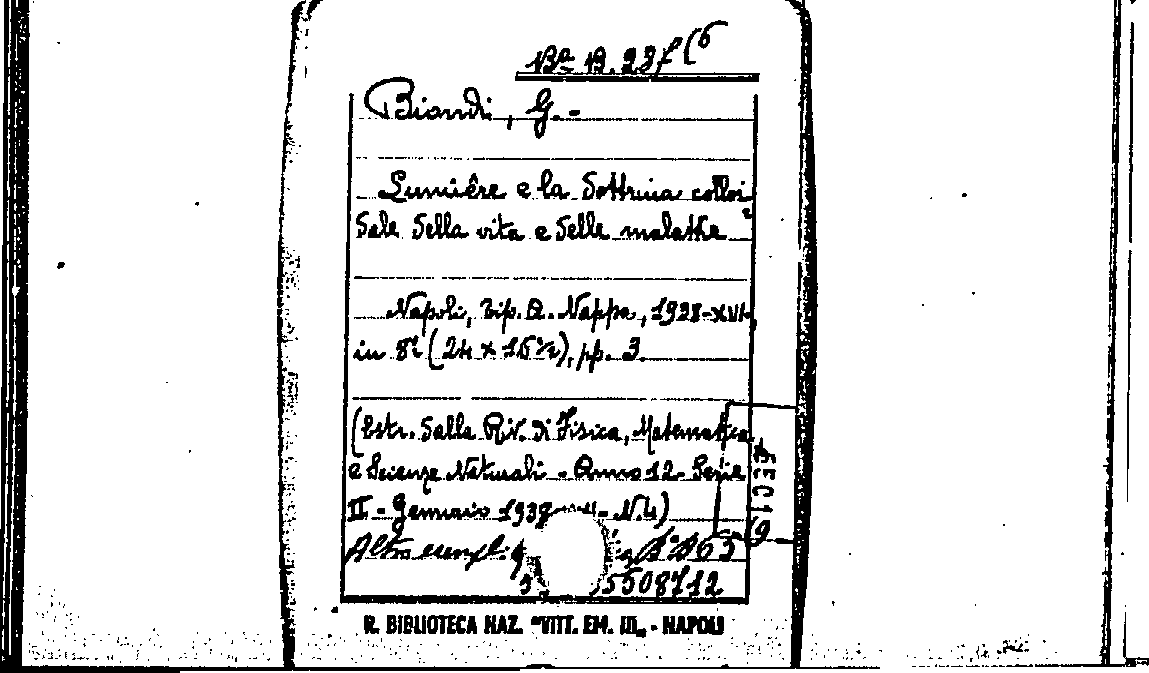 Bª 19.23f(6
Biondi, G. -
Lumière e la dottrina colloi
dale della vita e delle malattie
Napoli, tip. A. Nappa, 1938-XVI-
in 8º (24 x 16½), pp. 3.
(Estr. dalla Riv. di Fisica, Matematica
e Scienze Naturali - Anno 12- Serie
II - Gennaio 1938 - N.4)
Altro esempl.
5508712
R. BIBLIOTECA NAZ. "VITT. EM. III„ - NAPOLI